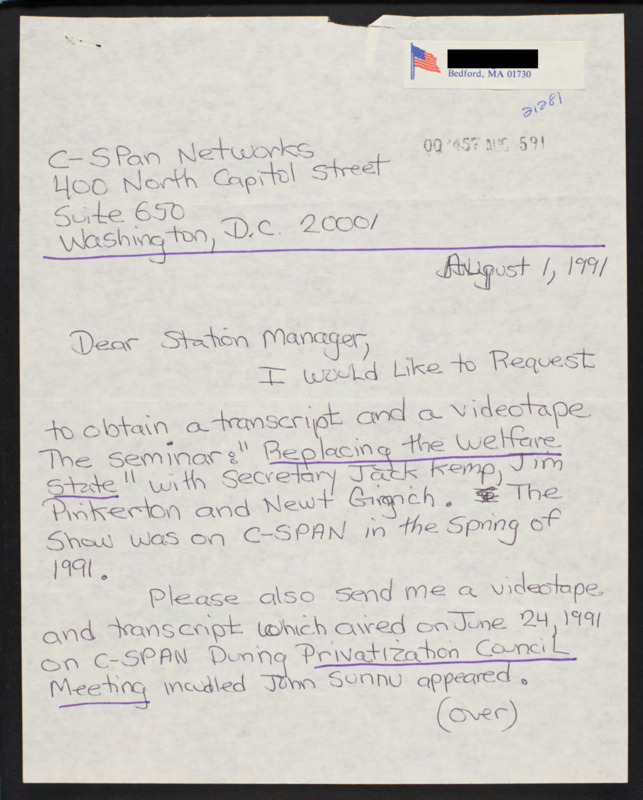 Bedford, MA 01730
21281
00457 AUG 591
C-SPan Networks
400 North Capitol Street
Suite 650
Washington, D.C. 20001
August 1, 1991
Dear Station Manager,
I would Like to Request
to obtain a transcript and a videotape
The seminar: "Replacing the welfare
State" with Secretary Jack Kemp, Jim
Pinkerton and Newt Gingrich. The
Show was on C-SPAN in the Spring of
1991.
Please also send me a videotape
and transcript which aired on June 24, 1991
on C-SPAN During Privatization Council
Meeting incudled John Sununu appeared.
(over)